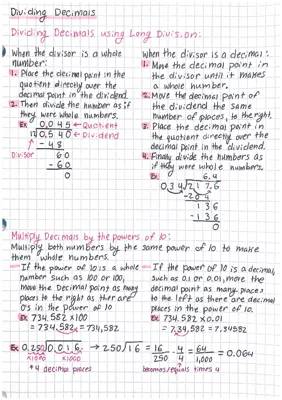 Dividing Decimals
Dividing Decimals using Long Division:
When the divisor is a whole
number:
1. Place the decimal point in the
quotient directly over the
decimal point in the dividend.
2. Then divide the number as if
they were whole numbers.
Ex 0.045 ← Quotient
0.540 ← Dividend
- 48
Divisor 60
- 60
0
When the divisor is a decimal:
1. Move the decimal point in
the divisor until it makes
a whole number.
2. Move the decimal point of
the dividend the same
number of places, to the right.
3. Place the decimal point in
the quotient directly over the
decimal point in the dividend.
4. Finally divide the numbers as
if they were whole numbers.
Ex 6.4
0.34 2.17.6
- 204
136
- 136
0
Multiply Decimals by the powers of 10:
Multiply both numbers by the same power of 10 to make
them whole numbers.
If the power of 10 is a whole
number such as 100 or 1000,
move the decimal point as many
places to the right as ther are
0's in the power of 10
Ex 734.582 × 100
= 734.582 = 73458.2
If the power of 10 is a decimal,
such as 0.1 or 0.01, move the
decimal point as many places
to the left as there are decimal
places in the power of 10.
Ex 734.582 × 0.01
= 7.34.582 = 7.34582
Ex 0.250 0.016 → 250 16 = 16/250 · 4/4 = 64/1,000 = 0.064
×1000 ×1000
* 4 decimal places
becomes/equals times 4